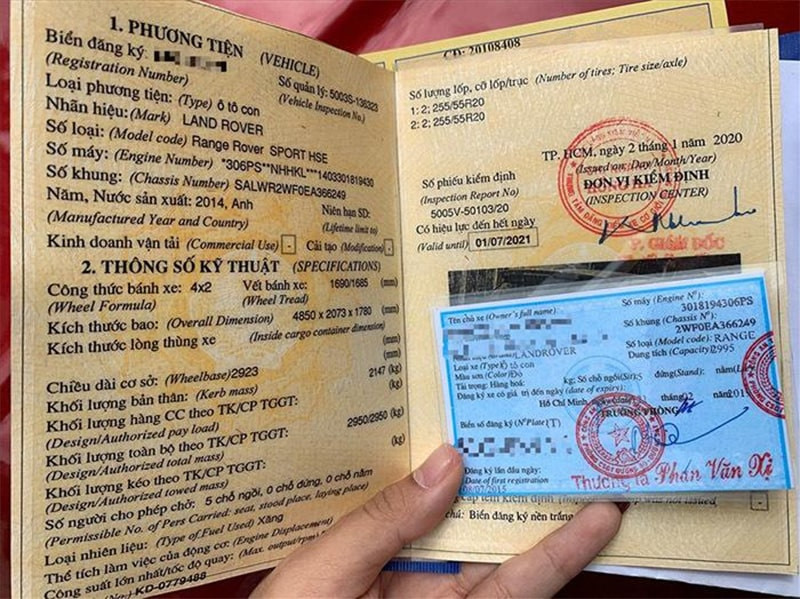 1. PHƯƠNG TIỆN (VEHICLE)
Biển đăng ký:
(Registration Number)
Số quản lý: 5003S-136323
(Vehicle Inspection No.)
Loại phương tiện: (Type) ô tô con
Nhãn hiệu: (Mark) LAND ROVER
Số loại: (Model code) Range Rover SPORT HSE
Số máy: (Engine Number) *306PS**NHHKL***1403301819430
Số khung: (Chassis Number) SALWR2WF0EA366249
Năm, Nước sản xuất: 2014, Anh
(Manufactured Year and Country)
Niên hạn SD:
(Lifetime limit to)
Kinh doanh vận tải (Commercial Use) - Cải tạo (Modification) -
2. THÔNG SỐ KỸ THUẬT (SPECIFICATIONS)
Công thức bánh xe: 4x2
(Wheel Formula)
Vết bánh xe: 1690/1685 (mm)
(Wheel Tread)
Kích thước bao: (Overall Dimension) 4850 x 2073 x 1780 (mm)
Kích thước lòng thùng xe (Inside cargo container dimension)
(mm)
Chiều dài cơ sở: (Wheelbase) 2923 (mm)
Khối lượng bản thân: (Kerb mass) 2147 (kg)
Khối lượng hàng CC theo TK/CP TGGT: (kg)
(Design/Authorized pay load)
Khối lượng toàn bộ theo TK/CP TGGT: 2950/2950 (kg)
(Design/Authorized total mass)
Khối lượng kéo theo TK/CP TGGT: (kg)
(Design/Authorized towed mass)
Số người cho phép chở: 5 chỗ ngồi, 0 chỗ đứng, 0 chỗ nằm
(Permissible No. of Pers Carried: seat, stood place, laying place)
Loại nhiên liệu: (Type of Fuel Used) Xăng
Thể tích làm việc của động cơ: (Engine Displacement)
Công suất lớn nhất/tốc độ quay: (Max. output/rpm)
KD-0779488
CD: 20108408
Số lượng lốp, cỡ lốp/trục (Number of tires; Tire size/axle)
1: 2; 255/55R20
2: 2; 255/55R20
TP. HCM, ngày 2 tháng 1 năm 2020
(Issued on: Day/Month/Year)
ĐƠN VỊ KIỂM ĐỊNH
(INSPECTION CENTER)
Số phiếu kiểm định
(Inspection Report No)
5005V-50103/20
Có hiệu lực đến hết ngày
(Valid until) 01/07/2021
P. GIÁM ĐỐC
Tên chủ xe (Owner's full name):
Số máy (Engine Nº):
3018194306PS
Số khung (Chassis Nº):
2WF0EA366249
LANDROVER
Số loại (Model code): RANGE
Loại xe (Type) ô tô con
Dung tích (Capacity): 2995
Màu sơn (Color) Đỏ
Tải trọng: Hàng hoá: kg; Số chỗ ngồi (Sit): 5 đứng (Stand):
Đăng ký xe có giá trị đến ngày (date of expiry):
Hồ Chí Minh
TRƯỞNG PHÒNG
Biển số đăng ký (NºPlate)
Đăng ký lần đầu ngày:
Date of first registration
Thượng tá Phán Văn Xị
was not issued
Biển đăng ký nền trắng